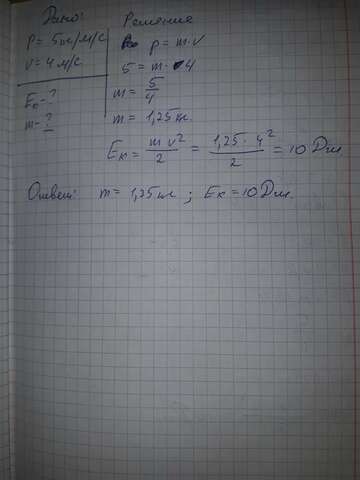 Дано:
P = 5кг/м/с
V = 4м/с
Eк - ?
m - ?
Решение
p = m·v
5 = m·4
m = 5/4
m = 1,25кг.
Eк = mv²/2 = 1,25·4²/2 = 10Дж.
Ответ: m = 1,25кг ; Eк = 10Дж.